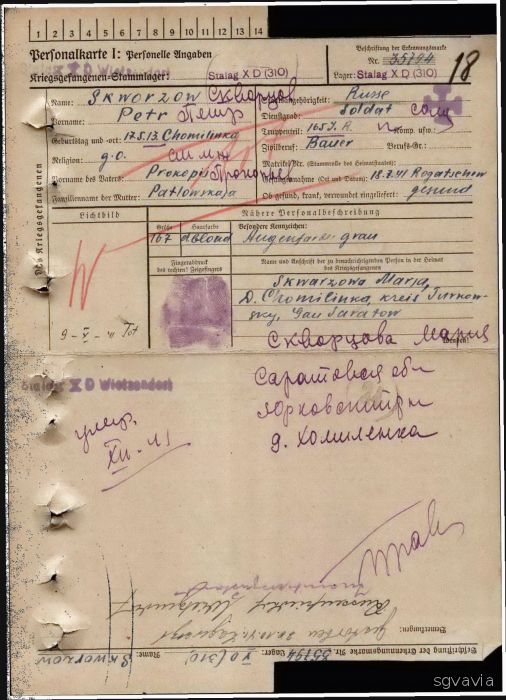 1 2 3 4 5 6 7 8 9 10 11 12 13 14
Personalkarte I: Personelle Angaben
Kriegsgefangenen-Stammlager: Stalag X D (310)
X D Wietzendorf
Beschriftung der Erkennungsmarke
Nr. 35794
Lager: Stalag X D (310)
18
Des Kriegsgefangenen
Name: Skworzow Скворцов
Vorname: Petr Петр
Geburtstag und -ort: 17.5.13 Chomilinka
Religion: g.o.
Vorname des Vaters: Prokopi
Familienname der Mutter: Pawlowskaja
Staatsangehörigkeit: Russe
Dienstgrad: Soldat
Truppenteil: 165 J.R. Komp. usw.:
Zivilberuf: Bauer Berufs-Gr.:
Matrikel Nr. (Stammrolle des Heimatstaates):
Gefangennahme (Ort und Datum): 18.7.41 Rogatschew
Ob gesund, krank, verwundet eingeliefert: gesund
Lichtbild
Nähere Personalbeschreibung
Größe Haarfarbe Besondere Kennzeichen:
167 d.blond Augenfarbe grau
Fingerabdruck
des rechten! Zeigefingers
Name und Anschrift der zu benachrichtigenden Person in der Heimat
des Kriegsgefangenen
Skwarzowa Marja,
D. Chomilinka, kreis Turkow-
sky, Gau Saratow
Tot
Скворцова Мария
Stalag X D Wietzendorf
Саратовская обл
д. Хомиленка
умер.
XII-41
Bemerkungen:
Beschriftung der Erkennungsmarke Nr. 35794
Lager: X D (310)
Name: Skworzow
sgvavia